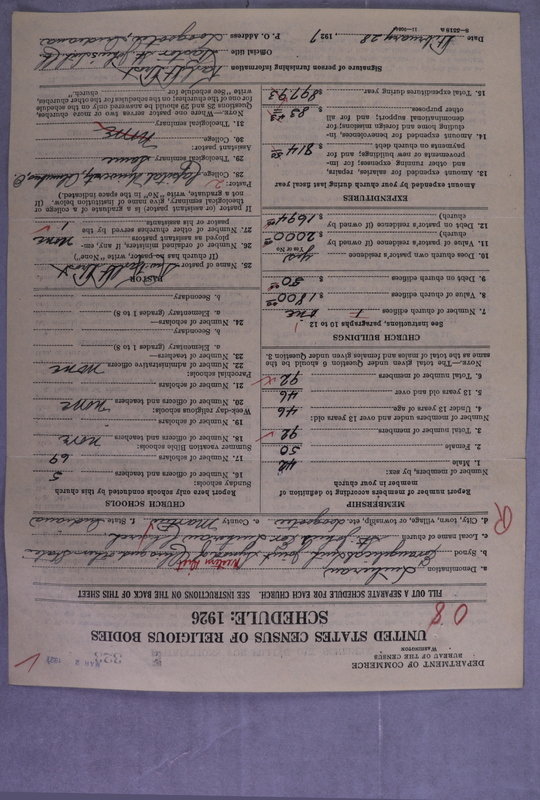 DEPARTMENT OF COMMERCE
BUREAU OF THE CENSUS
WASHINGTON
UNITED STATES CENSUS OF RELIGIOUS BODIES
SCHEDULE: 1926
08
FILL OUT A SEPARATE SCHEDULE FOR EACH CHURCH. SEE INSTRUCTIONS ON THE BACK OF THIS SHEET
a. Denomination Lutheran
b. Synod Evangelical Joint Synod of Ohio and other States
c. Local name of church St. John's Ev. Lutheran Church
d. City, town, village, or township, etc. Loogootee e. County Martin f. State Indiana
R
MEMBERSHIP
Report number of members according to definition of
member in your church
Number of members, by sex:
1. Male 42
2. Female 50
3. Total number of members 92
Number of members under and over 13 years old:
4. Under 13 years of age 46
5. 13 years old and over 46
6. Total number of members 92
NOTE.—The total given under Question 6 should be the
same as the total of males and females given under Question 3.
CHURCH BUILDINGS
See Instructions, paragraphs 10 to 12
7. Number of church edifices one
8. Value of church edifices $ 1800
9. Debt on church edifices $ 50
10. Does church own pastor's residence yes
(Yes or No)
11. Value of pastor's residence (if owned by
church) $ 2000
12. Debt on pastor's residence (if owned by
church) $ 1694
EXPENDITURES
Amount expended by your church during last fiscal year
13. Amount expended for salaries, repairs,
and other running expenses; for im-
provements or new buildings; and for
payments on church debt $ 814
14. Amount expended for benevolences, in-
cluding home and foreign missions; for
denominational support; and for all
other purposes $ 83
15. Total expenditures during year $ 897.93
CHURCH SCHOOLS
Report here only schools conducted by this church
Sunday schools:
16. Number of officers and teachers 5
17. Number of scholars 69
Summer vacation Bible schools:
18. Number of officers and teachers none
19. Number of scholars
Week-day religious schools:
20. Number of officers and teachers none
21. Number of scholars
Parochial schools:
22. Number of administrative officers none
23. Number of teachers—
a. Elementary (grades 1 to 8)
b. Secondary
24. Number of scholars—
a. Elementary (grades 1 to 8)
b. Secondary
PASTOR
25. Name of pastor
(If church has no pastor, write "None")
26. Number of ordained ministers, if any, em-
ployed as assistant pastors none
27. Number of other churches served by the
pastor or his assistants 1
If pastor (or assistant pastor) is a graduate of a college or
theological seminary, give name of institution below. (If
not a graduate, write "No" in the space indicated.)
Pastor:
28. College Capital University, Columbus, O.
29. Theological seminary Same
Assistant pastor:
30. College none
31. Theological seminary
NOTE.—Where one pastor serves two or more churches,
Questions 28 and 29 should be answered only on the schedule
for one of the churches; on schedules for the other churches,
write "See schedule for church."
Signature of person furnishing information
Official title Pastor
P. O. Address Loogootee, Indiana
Date February 28 1927
8—5518 a